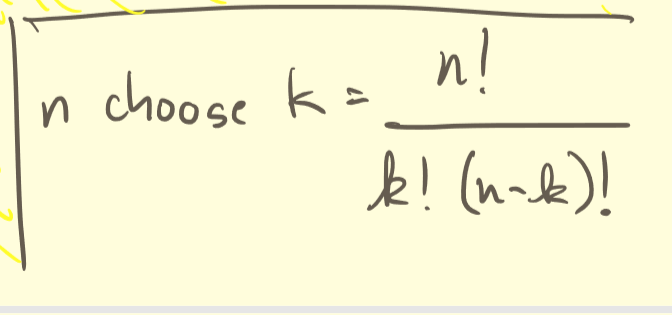 n choose k = n!
k! (n-k)!